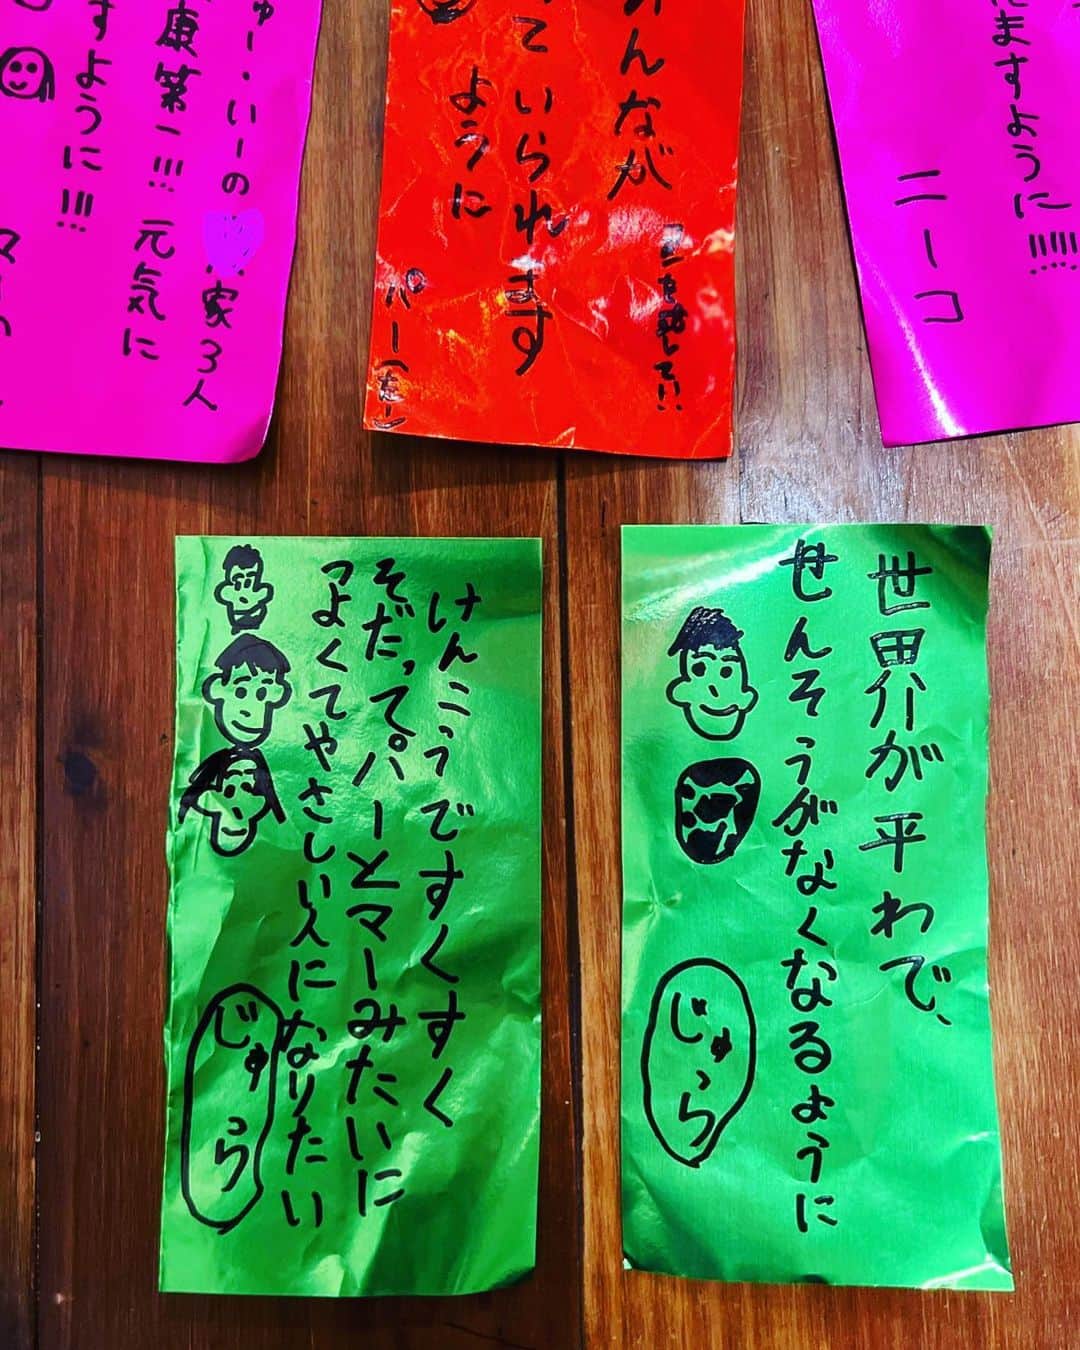 ますように!!!!!
ニーコ
んなが
ていられます
ように
パー
いーの
家3人
康第一!!! 元気に
すように!!!
世界が平わで、
せんそうがなくなるように
じゅら
けんこうですくすく
そだって。パーとマーみたいに
つよくてやさしい人になりたい
じゅら